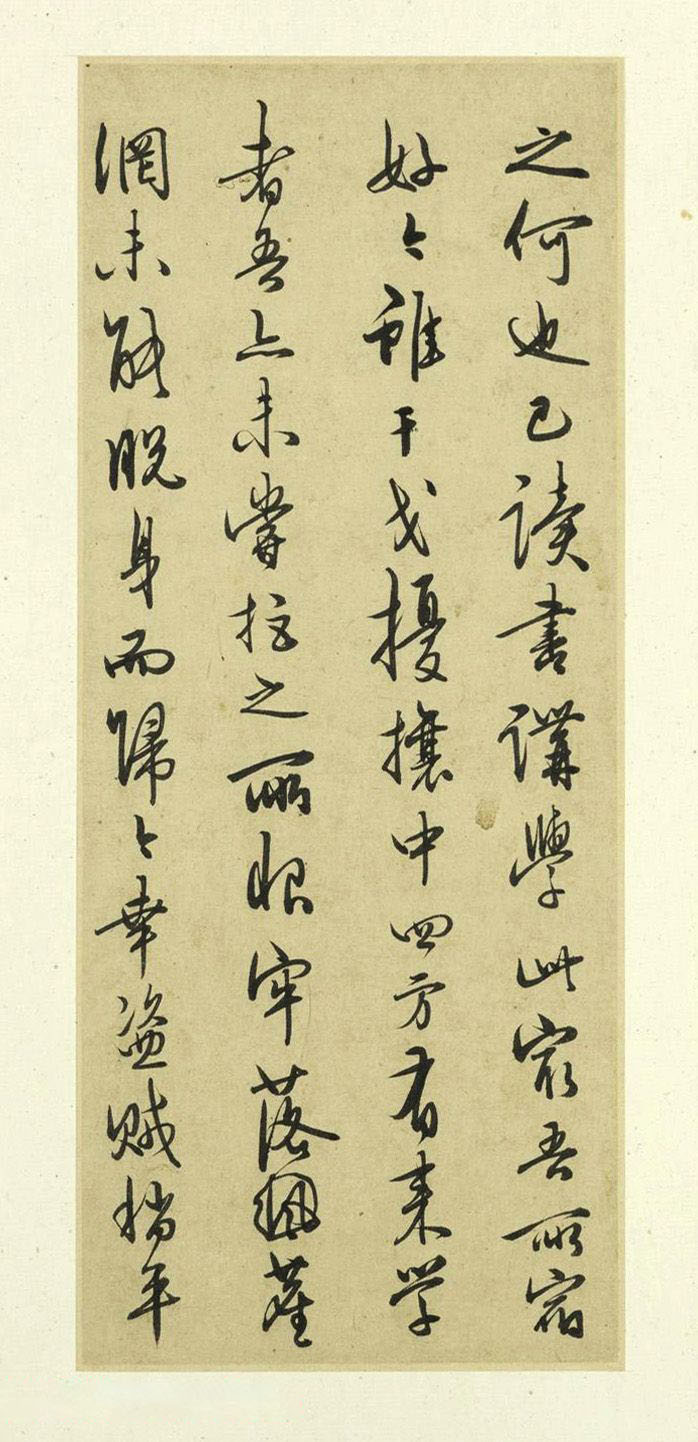 之何也已读书講學此最吾所宿
好々雖干戈擾攘中四方有来学
者吾亦未嘗拒之所恨牢落塵
網未能脱身而歸々幸盗贼稍平